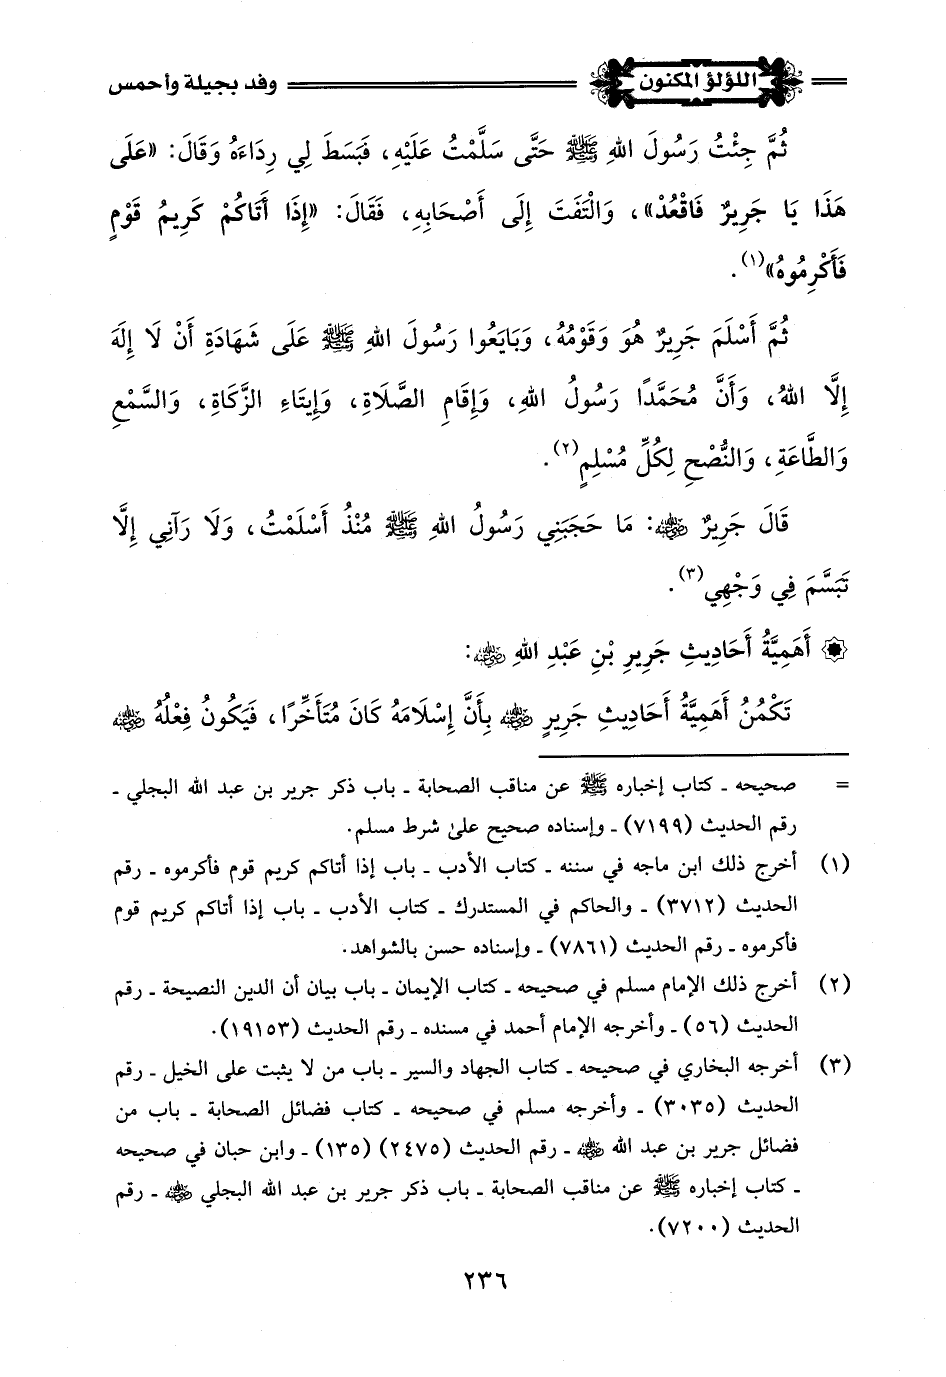 اللؤلؤ المكنون وفد بجيلة وأحمس
ثُمَّ جِئْتُ رَسُولَ اللهِ ﷺ حَتَّى سَلَّمْتُ عَلَيْهِ، فَبَسَطَ لِي رِدَاءَهُ وَقَالَ: «عَلَى
هَذَا يَا جَرِيرُ فَاقْعُدْ»، وَالْتَفَتَ إِلَى أَصْحَابِهِ، فَقَالَ: «إِذَا أَتَاكُمْ كَرِيمُ قَوْمٍ
فَأَكْرِمُوهُ»(١).
ثُمَّ أَسْلَمَ جَرِيرٌ هُوَ وَقَوْمُهُ، وَبَايَعُوا رَسُولَ اللهِ ﷺ عَلَى شَهَادَةِ أَنْ لَا إِلَهَ
إِلَّا اللهُ، وَأَنَّ مُحَمَّدًا رَسُولُ اللهِ، وَإِقَامِ الصَّلَاةِ، وَإِيتَاءِ الزَّكَاةِ، وَالسَّمْعِ
وَالطَّاعَةِ، وَالنُّصْحِ لِكُلِّ مُسْلِمٍ(٢).
قَالَ جَرِيرٌ رضي الله عنه: مَا حَجَبَنِي رَسُولُ اللهِ ﷺ مُنْذُ أَسْلَمْتُ، وَلَا رَآنِي إِلَّا
تَبَسَّمَ فِي وَجْهِي(٣).
۞ أَهَمِيَّةُ أَحَادِيثِ جَرِيرِ بْنِ عَبْدِ اللهِ رضي الله عنه:
تَكْمُنُ أَهَمِيَّةُ أَحَادِيثِ جَرِيرٍ رضي الله عنه بِأَنَّ إِسْلَامَهُ كَانَ مُتَأَخِّرًا، فَيَكُونُ فِعْلُهُ رضي الله عنه
= صحيحه ـ كتاب إخباره ﷺ عن مناقب الصحابة ـ باب ذكر جرير بن عبد الله البجلي ـ
رقم الحديث (٧١٩٩) ـ وإسناده صحيح على شرط مسلم.
(١) أخرج ذلك ابن ماجه في سننه ـ كتاب الأدب ـ باب إذا أتاكم كريم قوم فأكرموه ـ رقم
الحديث (٣٧١٢) ـ والحاكم في المستدرك ـ كتاب الأدب ـ باب إذا أتاكم كريم قوم
فأكرموه ـ رقم الحديث (٧٨٦١) ـ وإسناده حسن بالشواهد.
(٢) أخرج ذلك الإمام مسلم في صحيحه ـ كتاب الإيمان ـ باب بيان أن الدين النصيحة ـ رقم
الحديث (٥٦) ـ وأخرجه الإمام أحمد في مسنده ـ رقم الحديث (١٩١٥٣).
(٣) أخرجه البخاري في صحيحه ـ كتاب الجهاد والسير ـ باب من لا يثبت على الخيل ـ رقم
الحديث (٣٠٣٥) ـ وأخرجه مسلم في صحيحه ـ كتاب فضائل الصحابة ـ باب من
فضائل جرير بن عبد الله رضي الله عنه ـ رقم الحديث (٢٤٧٥) (١٣٥) ـ وابن حبان في صحيحه
ـ كتاب إخباره ﷺ عن مناقب الصحابة ـ باب ذكر جرير بن عبد الله البجلي رضي الله عنه ـ رقم
الحديث (٧٢٠٠).
٢٣٦